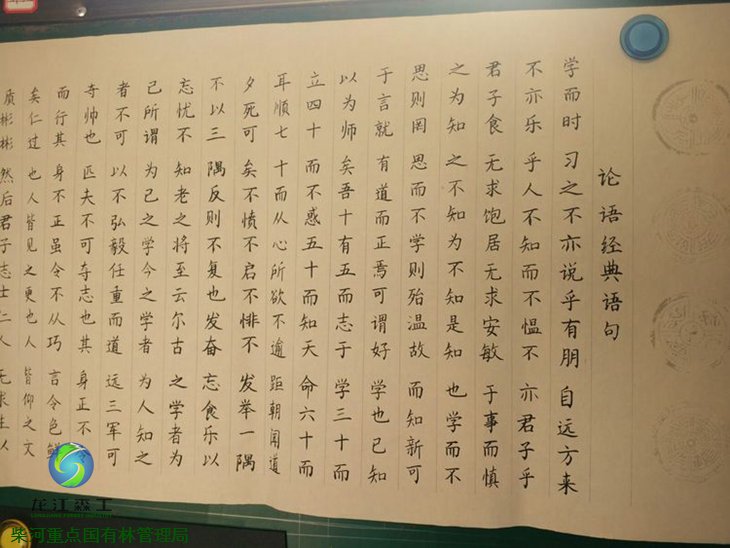 论语经典语句
学而时习之不亦说乎有朋自远方来
不亦乐乎人不知而不愠不亦君子乎
君子食无求饱居无求安敏于事而慎
之为知之不知为不知是知也学而不
思则罔思而不学则殆温故而知新可
于言就有道而正焉可谓好学也已知
以为师矣吾十有五而志于学三十而
立四十而不惑五十而知天命六十而
耳顺七十而从心所欲不逾距朝闻道
夕死可矣不愤不启不悱不发举一隅
不以三隅反则不复也发奋忘食乐以
忘忧不知老之将至云尔古之学者为
己所谓为己之学今之学者为人知之
者不可以不弘毅任重而道远三军可
夺帅也匹夫不可夺志也其身正不
而行其身不正虽令不从巧言令色鲜
矣仁过也人皆见之更也人皆仰之文
质彬彬然后君子志士仁人无求生
龙江森工
柴河重点国有林管理局